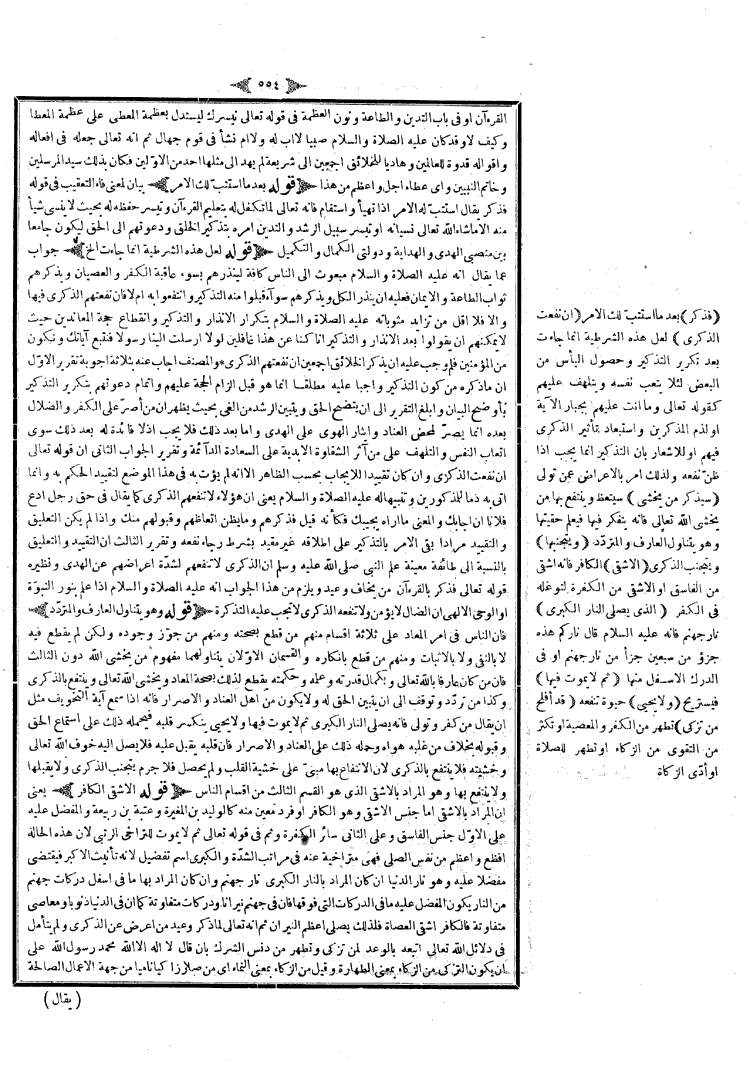 ٥٥٤
القرءآن او فى باب التدين والطاعة ونون العظمة فى قوله تعالى نيسرك ليستدل بعظمة المعطى على عظمة المعطا
وكيف لا وقد كان عليه الصلاة والسلام صبيا لا اب له ولا ام نشأ فى قوم جهال ثم انه تعالى جعله فى افعاله
واقواله قدوة للعالمين وهاديا للخلائق اجمعين الى شريعة لم يهد الى مثلها احد من الاولين فكان بذلك سيد المرسلين
وخاتم النبيين واى عطاء اجل واعظم من هذا ﴿قوله بعد ما استتب لك الامر﴾ بيان لمعنى فاء التعقيب فى قوله
فذكر يقال استتب له الامر اذا تهيأ واستقام فانه تعالى لما تكفل له بتعليم القرءآن وتيسر حفظه له بحيث لا ينسى شيأ
منه الا ماشاء الله تعالى نسيانه او تيسر سبيل الرشد والتدين امره بتذكير الخلق ودعوتهم الى الحق ليكون جامعا
بين منصبى الهدى والهداية ودولتى الكمال والتكميل ﴿قوله لعل هذه الشرطية انما جاءت الخ﴾ جواب
عما يقال انه عليه الصلاة والسلام مبعوث الى الناس كافة لينذرهم بسوء عاقبة الكفر والعصيان ويذكرهم
ثواب الطاعة والايمان فعليه ان ينذر الكل ويذكرهم سوآء قبلوا منه التذكير وانتفعوا به ام لا فان نفعتهم الذكرى فيها
والا فلا اقل من تزايد مثوباته عليه الصلاة والسلام بتكرار الانذار والتذكير وانقطاع حجة المعاندين حيث
لا يمكنهم ان يقولوا بعد الانذار والتذكير انا كنا عن هذا غافلين لولا ارسلت الينا رسولا فنتبع آياتك ونكون
من المؤمنين فلم وجب عليه ان يذكر الخلائق اجمعين ان نفعتهم الذكرى * والمصنف اجاب عنه بثلاثة اجوبة تقرير الاول
ان ما ذكره من كون التذكير واجبا عليه مطلقا انما هو قبل الزام الحجة عليهم واتمام دعوتهم بتكرير التذكير
باوضح البيان وابلغ التقرير الى ان يتضح الحق ويتبين الرشد من الغى بحيث يظهر ان من أصر على الكفر والضلال
بعده انما يصر لمحض العناد وايثار الهوى على الهدى واما بعد ذلك فلا يجب اذ لا فائدة له بعد ذلك سوى
اتعاب النفس والتلهف على من آثر الشقاوة الابدية على السعادة الدآئمة وتقرير الجواب الثانى ان قوله تعالى
ان نفعت الذكرى وان كان تقييدا للايجاب بحسب الظاهر الا انه لم يؤت به فى هذا الموضع لتقييد الحكم به وانما
اتى به ذما للمذكورين وتنبيها له عليه الصلاة والسلام يعنى ان هؤلاء لا تنفعهم الذكرى كما يقال فى حق رجل ادع
فلانا ان اجابك والمعنى ما اراه يجيبك فكأنه قيل فذكرهم وما يظن اتعاظهم وقبولهم منك واذا لم يكن التعليق
والتقييد مرادا بقى الامر بالتذكير على اطلاقه غير مقيد بشرط رجاء نفعه وتقرير الثالث ان التقييد والتعليق
بالنسبة الى طائفة معينة علم النبى صلى الله عليه وسلم ان الذكرى لا تنفعهم لشدة اعراضهم عن الهدى ونظيره
قوله تعالى فذكر بالقرءآن من يخاف وعيد ويلزم من هذا الجواب انه عليه الصلاة والسلام اذا علم بنور النبوة
او الوحى الالهى ان الضال لا يؤمن ولا تنفعه الذكرى لا تجب عليه التذكرة ﴿قوله وهو يتناول العارف والمتردد﴾
فان الناس فى امر المعاد على ثلاثة اقسام منهم من قطع بصحته ومنهم من جوز وجوده ولكن لم يقطع فيه
لا بالنفى ولا بالاثبات ومنهم من قطع بانكاره والقسمان الاولان يتناولهما مفهوم من يخشى الله دون الثالث
فان من كان عارفا بالله تعالى وبكمال قدرته وعمله وحكمته يقطع لذلك بصحة المعاد ويخشى الله تعالى وينتفع بالذكرى
وكذا من تردد وتوقف الى ان يتبين الحق له ولا يكون من اهل العناد والاصرار فانه اذا سمع آية التخويف مثل
ان يقال من كفر وتولى فانه يصلى النار الكبرى ثم لا يموت فيها ولا يحيى ينكسر قلبه فيحمله ذلك على استماع الحق
وقبوله بخلاف من غلبه هواه وحمله ذلك على العناد والاصرار فان قلبه يقبل عليه فلا يصل اليه خوف الله تعالى
وخشيته فلا ينتفع بالذكرى لان الانتفاع بها مبنى على خشية القلب ولم يحصل فلا جرم يتجنب الذكرى ولا يقبلها
ولا ينتفع بها وهو المراد بالاشقى الذى هو القسم الثالث من اقسام الناس ﴿قوله الاشقى الكافر﴾ يعنى
ان المراد بالاشقى اما جنس الاشقى وهو الكافر او فرد معين منه كالوليد بن المغيرة وعتبة بن ربيعة والمفضل عليه
على الاول جنس الفاسق وعلى الثانى سائر الكفرة وثم فى قوله تعالى ثم لا يموت للتراخى الرتبى لان هذه الحالة
افظع واعظم من نفس الصلى فهى متراخية عنه فى مراتب الشدة والكبرى اسم تفضيل لانه تأنيث الاكبر فيقتضى
مفضلا عليه وهو نار الدنيا ان كان المراد بالنار الكبرى نار جهنم وان كان المراد بها ما فى اسفل دركات جهنم
من النار يكون المفضل عليه ما فى الدركات التى فوقها فان فى جهنم نيرانا ودركات متفاوتة كما ان فى الدنيا ذنوبا ومعاصى
متفاوتة فالكافر اشقى العصاة فلذلك يصلى اعظم النيران ثم انه تعالى لما ذكر وعيد من اعرض عن الذكرى ولم يتأمل
فى دلائل الله تعالى اتبعه بالوعد لمن تزكى وتطهر من دنس الشرك بان قال لا اله الا الله محمد رسول الله على
ان يكون التزكى من الزكاء بمعنى الطهارة وقيل من الزكاء بمعنى النماء اى من صار زاكيا ناميا من جهة الاعمال الصالحة
(يقال)
(فذكر) بعد ما استتب لك الامر (ان نفعت
الذكرى) لعل هذه الشرطية انما جاءت
بعد تكرير التذكير وحصول اليأس من
البعض لئلا يتعب نفسه ويتلهف عليهم
كقوله تعالى وما انت عليهم بجبار الآية
او لذم المذكرين واستبعاد تأثير الذكرى
فيهم او للاشعار بان التذكير انما يجب اذا
ظن نفعه ولذلك امر بالاعراض عمن تولى
(سيذكر من يخشى) سيتعظ وينتفع بها من
يخشى الله تعالى فانه يتفكر فيها فيعلم حقيتها
وهو يتناول العارف والمتردد (ويتجنبها)
ويتجنب الذكرى (الاشقى) الكافر فانه اشقى
من الفاسق او الاشقى من الكفرة لتوغله
فى الكفر (الذى يصلى النار الكبرى)
نار جهنم فانه عليه السلام قال ناركم هذه
جزؤ من سبعين جزأ من نار جهنم او فى
الدرك الاسفل منها (ثم لا يموت فيها)
فيستريح (ولا يحيى) حيوة تنفعه (قد افلح
من تزكى) تطهر من الكفر والمعصية او تكثر
من التقوى من الزكاء او تطهر للصلاة
او أدى الزكاة